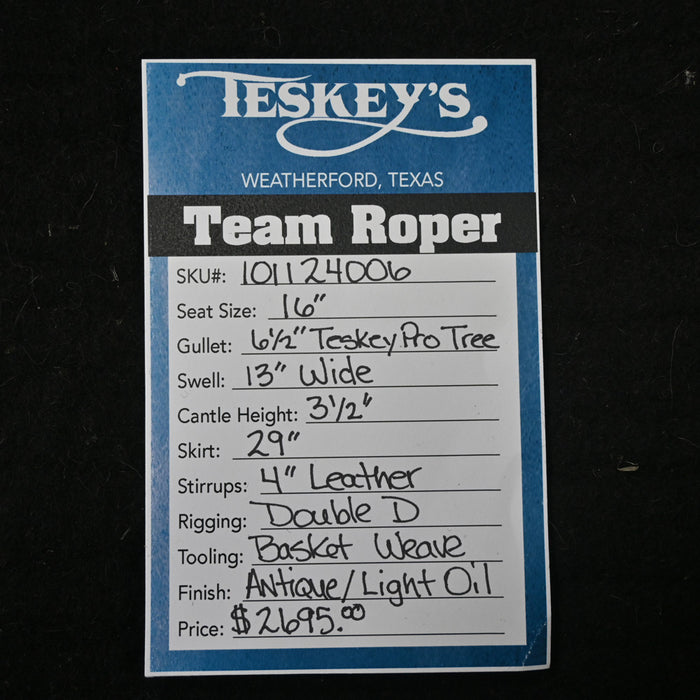 TESKEY'S
WEATHERFORD, TEXAS
Team Roper
SKU#: 101124006
Seat Size: 16"
Gullet: 6½" Teskey Pro Tree
Swell: 13" Wide
Cantle Height: 3½"
Skirt: 29"
Stirrups: 4" Leather
Rigging: Double D
Tooling: Basket Weave
Finish: Antique/Light Oil
Price: $2695.00